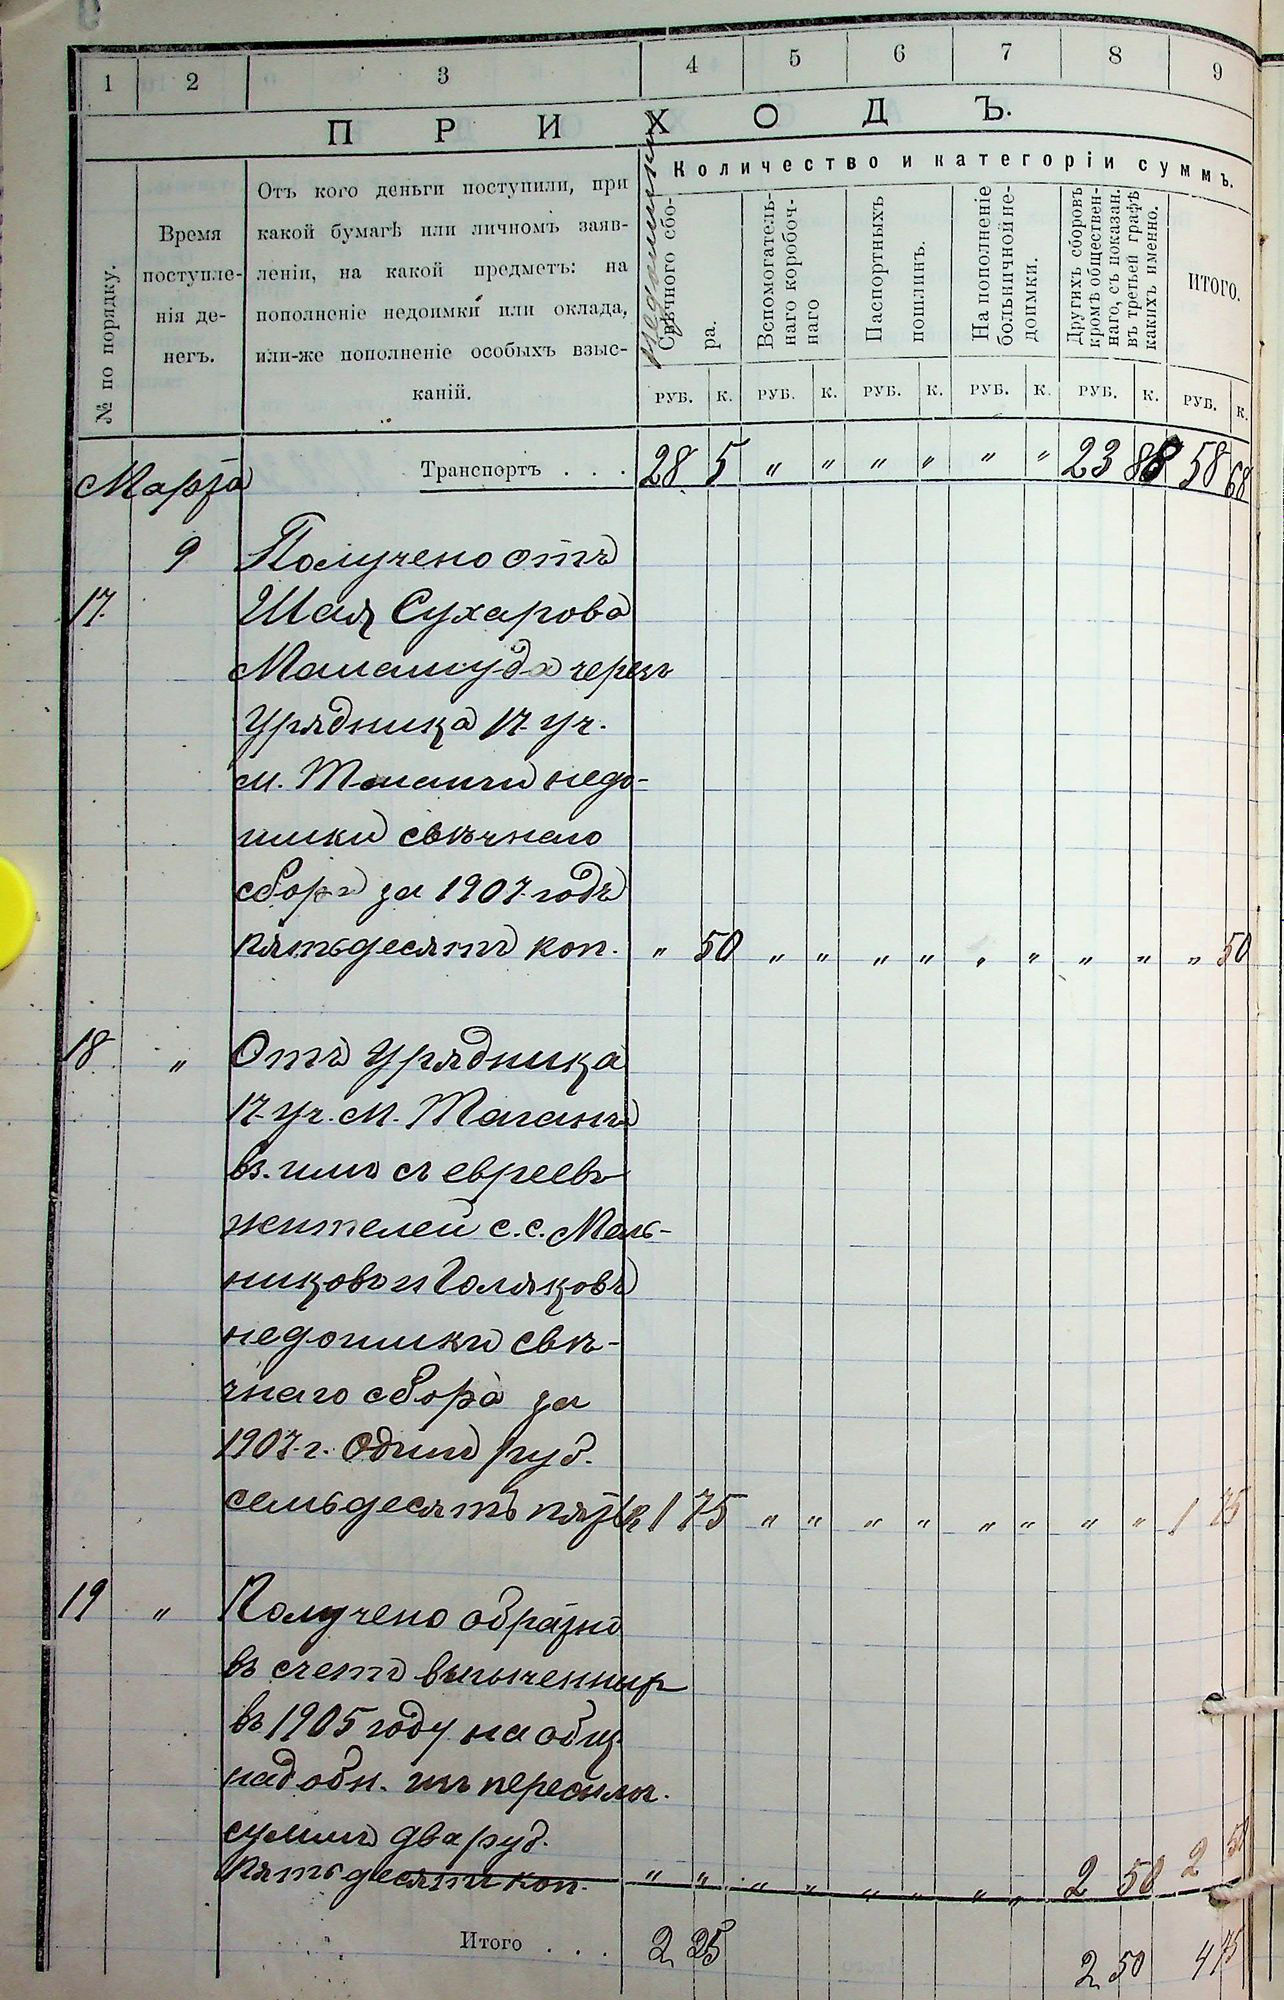 1 2 3 4 5 6 7 8 9
ПРИХОДЪ.
№ по порядку.
Время
поступле-
нія де-
негъ.
Отъ кого деньги поступили, при
какой бумагѣ или личномъ заяв-
леніи, на какой предметъ: на
пополненіе недоимки или оклада,
или-же пополненіе особыхъ взыс-
каній.
Количество и категоріи суммъ.
недоимки
Свѣчного сбо-
ра.
Вспомогатель-
наго коробоч-
наго
Паспортныхъ
пошлинъ.
На пополненіе
больничной не-
доимки.
Другихъ сборовъ
кромѣ обществен-
наго, съ показан.
въ третьей графѣ
какихъ именно.
ИТОГО.
РУБ. К. РУБ. К. РУБ. К. РУБ. К. РУБ. К. РУБ. К.
Марта Транспортъ . . . 28 5 „ „ „ „ „ „ 23 88 58 68
9 Получено отъ
17. Шая Сухарова
через
Урядника 17 уч.
м. недо-
имки свѣчнаго
сбора за 1907 годъ
пятьдесятъ коп. „ 50 „ „ „ „ „ „ „ „ „ 50
18 „ Отъ Урядника
17 уч. м.
вз. имъ съ евреевъ
жителей с.с. Мель-
никовъ и Голяковъ
недоимки свѣ-
чнаго сбора за
1907 г. Одинъ руб.
семьдесятъ пять к 1 75 „ „ „ „ „ „ „ „ 1 75
19 „ Получено обратно
въ счетъ
въ 1905 году на общ.
надобн.
суммъ два руб.
пятьдесятъ коп. „ „ „ „ „ „ „ „ 2 50 2 50
Итого . . . 2 25 2 50 4 75